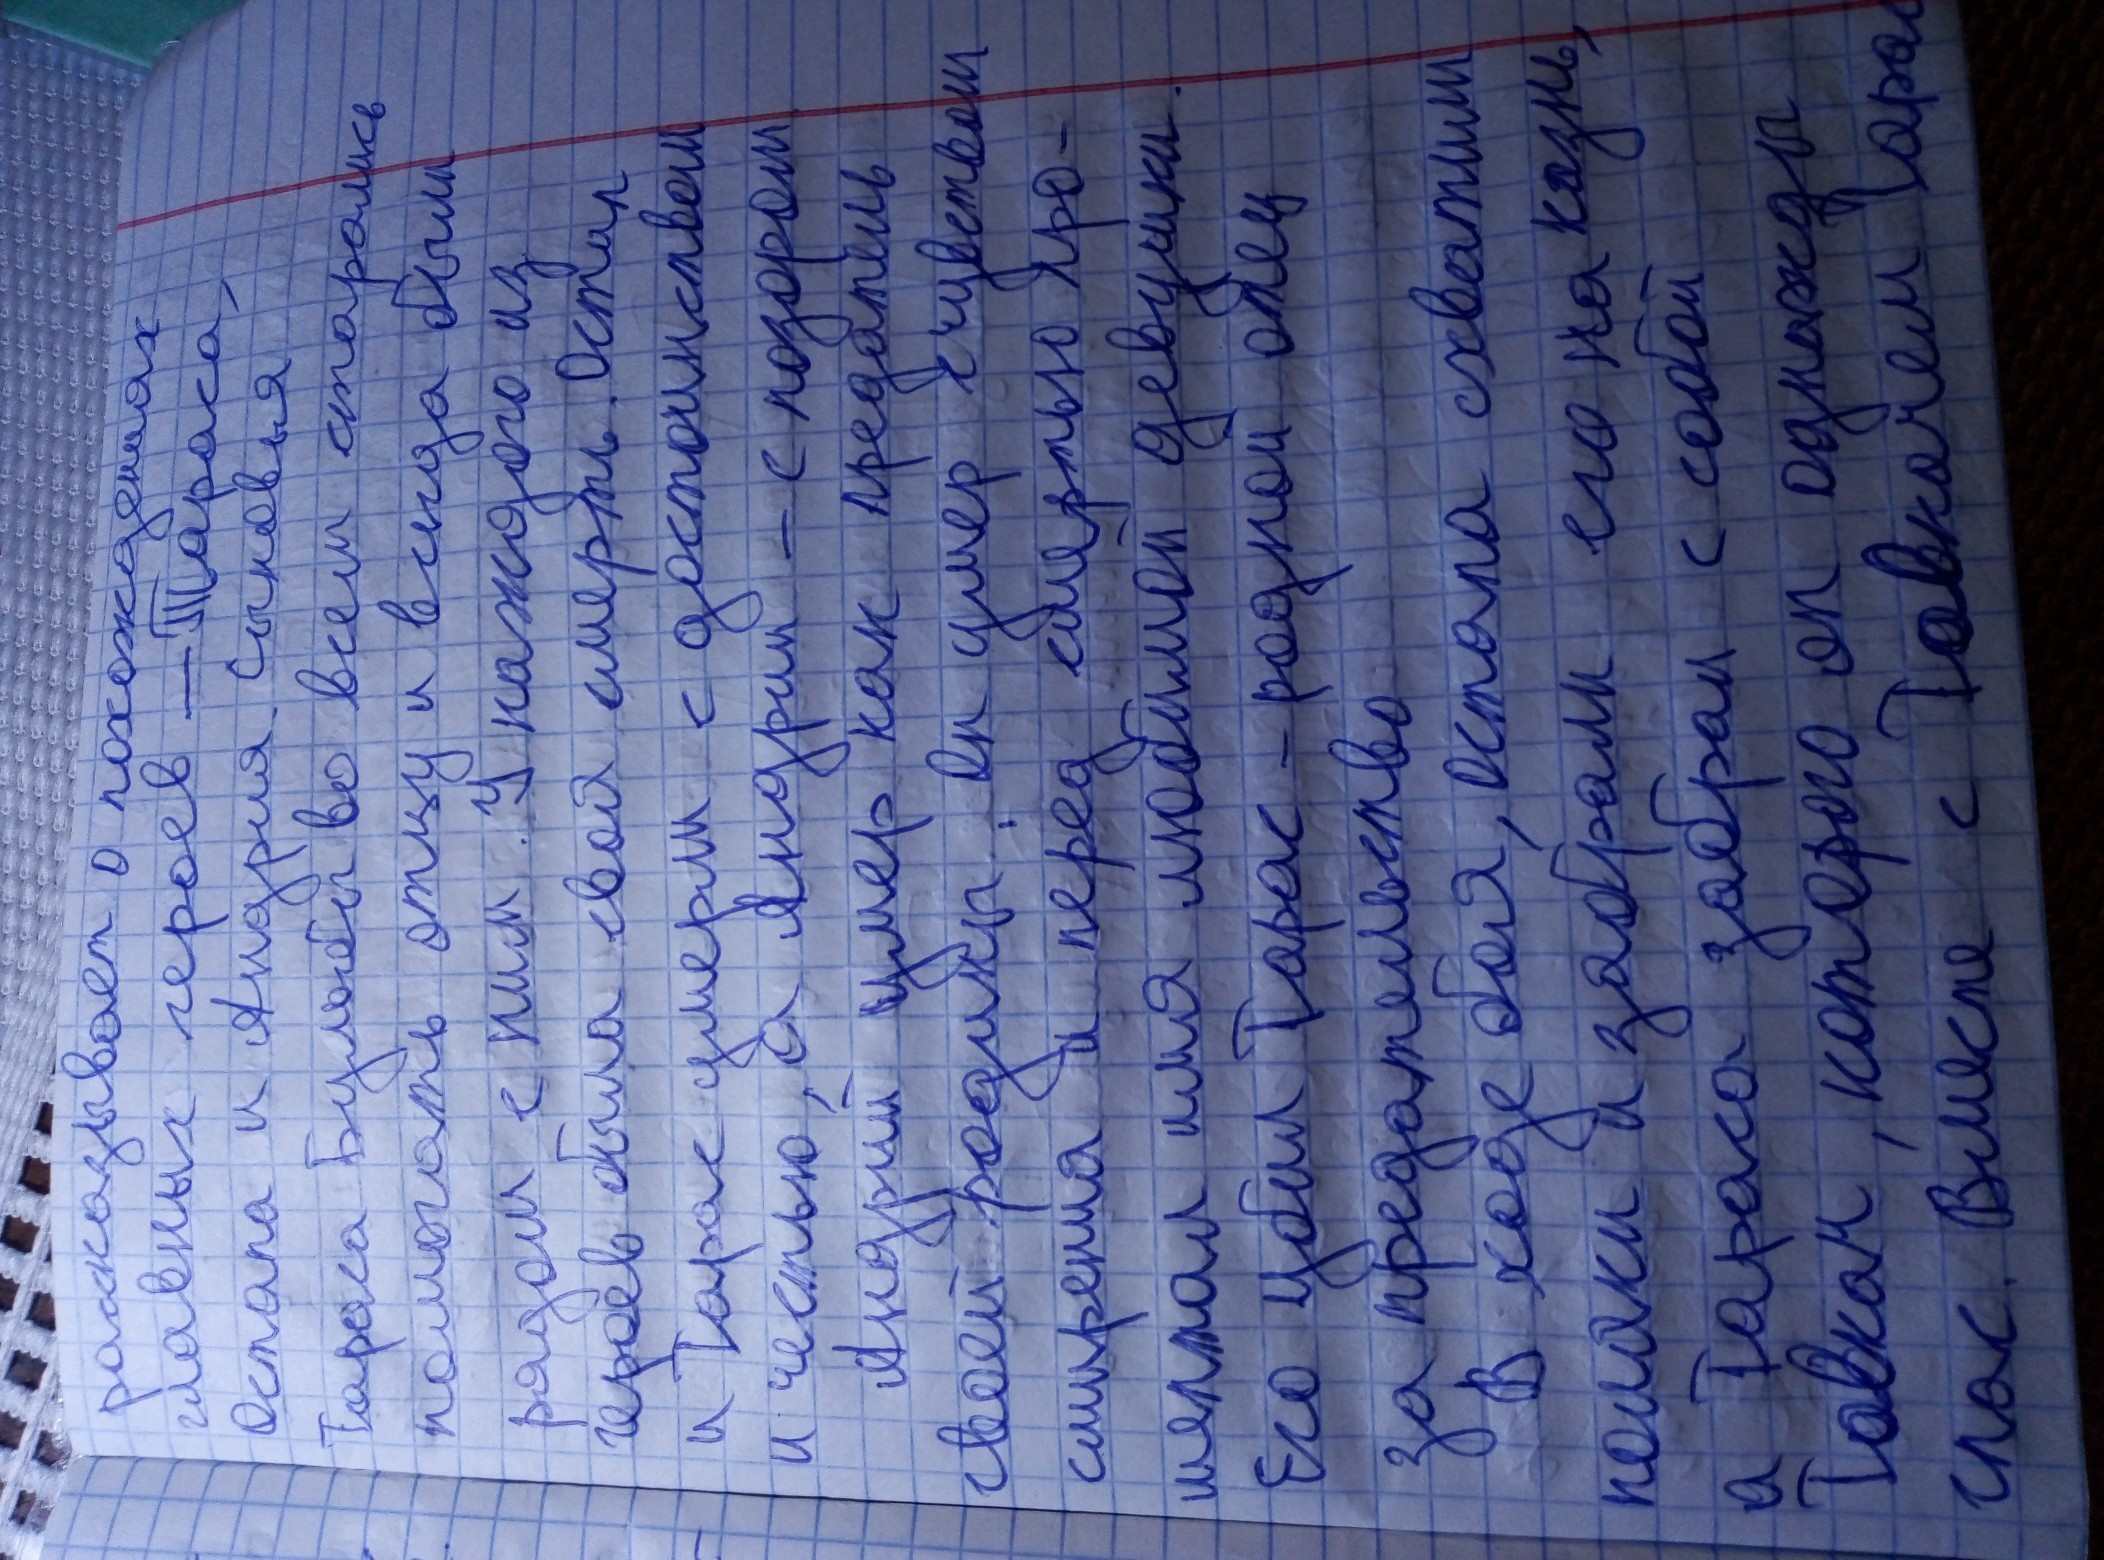 рассказывает о похождениях
главных героев – Тараса,
Остапа и Андрия. сыновья
Тараса Бульбы во всем старались
помогать отцу и всегда были
рядом с ним. У каждого из
героев была своя смерть. Остап
и Тарас умерли с достоинством
и честью, а Андрий – с позором
Андрий умер как предатель
своей родины. Он умер с чувством
смирения перед смертью про-
шептал имя любимой девушки.
Его убил Тарас – родной отец
за предательство
В ходе боя, Остапа схватили
поляки и забрали его на казнь,
а Тараса забрал с собой
Товкач, которого он однажды
спас. Вместе с Товкачем Тарас